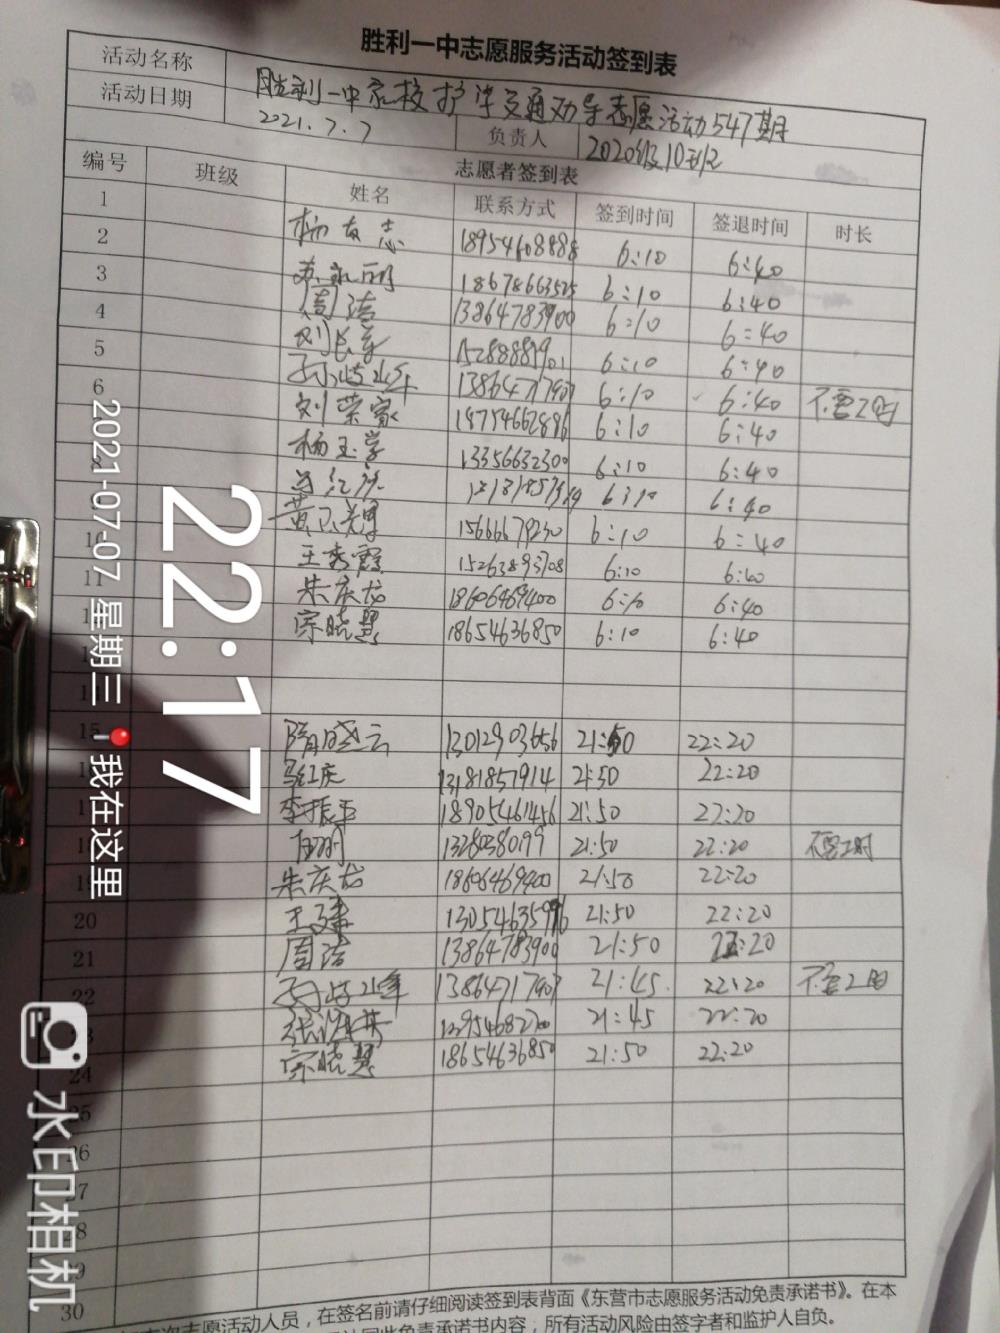 胜利一中志愿服务活动签到表
活动名称 胜利一中家校护学交通劝导志愿活动547期
活动日期 2021.7.7 负责人 2020级10班
志愿者签到表
编号 班级 姓名 联系方式 签到时间 签退时间 时长
1 杨友志 18954608888 6:10 6:40
2 苏永丽 18678663525 6:10 6:40
3 周洁 13864783900 6:10 6:40
4 刘长军 6:10 6:40
5 13864717907 6:10 6:40 不需工时
6 刘荣家 18754662896 6:10 6:40
杨玉学 13356632300 6:10 6:40
8 6:10 6:40
15666679230 6:10 6:40
10 王秀霞 15263893708 6:10 6:40
11 朱庆龙 18606469400 6:10 6:40
宗晓慧 18654636850 6:10 6:40
15 隋晓云 13012903656 21:50 22:20
13181857914 21:50 22:20
李振玉 18905461456 21:50 22:20
21:50 22:20 不需工时
朱庆龙 18606469400 21:50 22:20
20 王建 13054635996 21:50 22:20
21 周洁 13864783900 21:50 22:20
22 13864717907 21:45 22:20 不需工时
21:45 22:20
24 宗晓慧 18654636850 21:50 22:20
30
志愿活动人员，在签名前请仔细阅读签到表背面《东营市志愿服务活动免责承诺书》。在本
此免责承诺书内容；所有活动风险由签字者和监护人自负。
22:17
2021-07-07 星期三 我在这里
水印相机